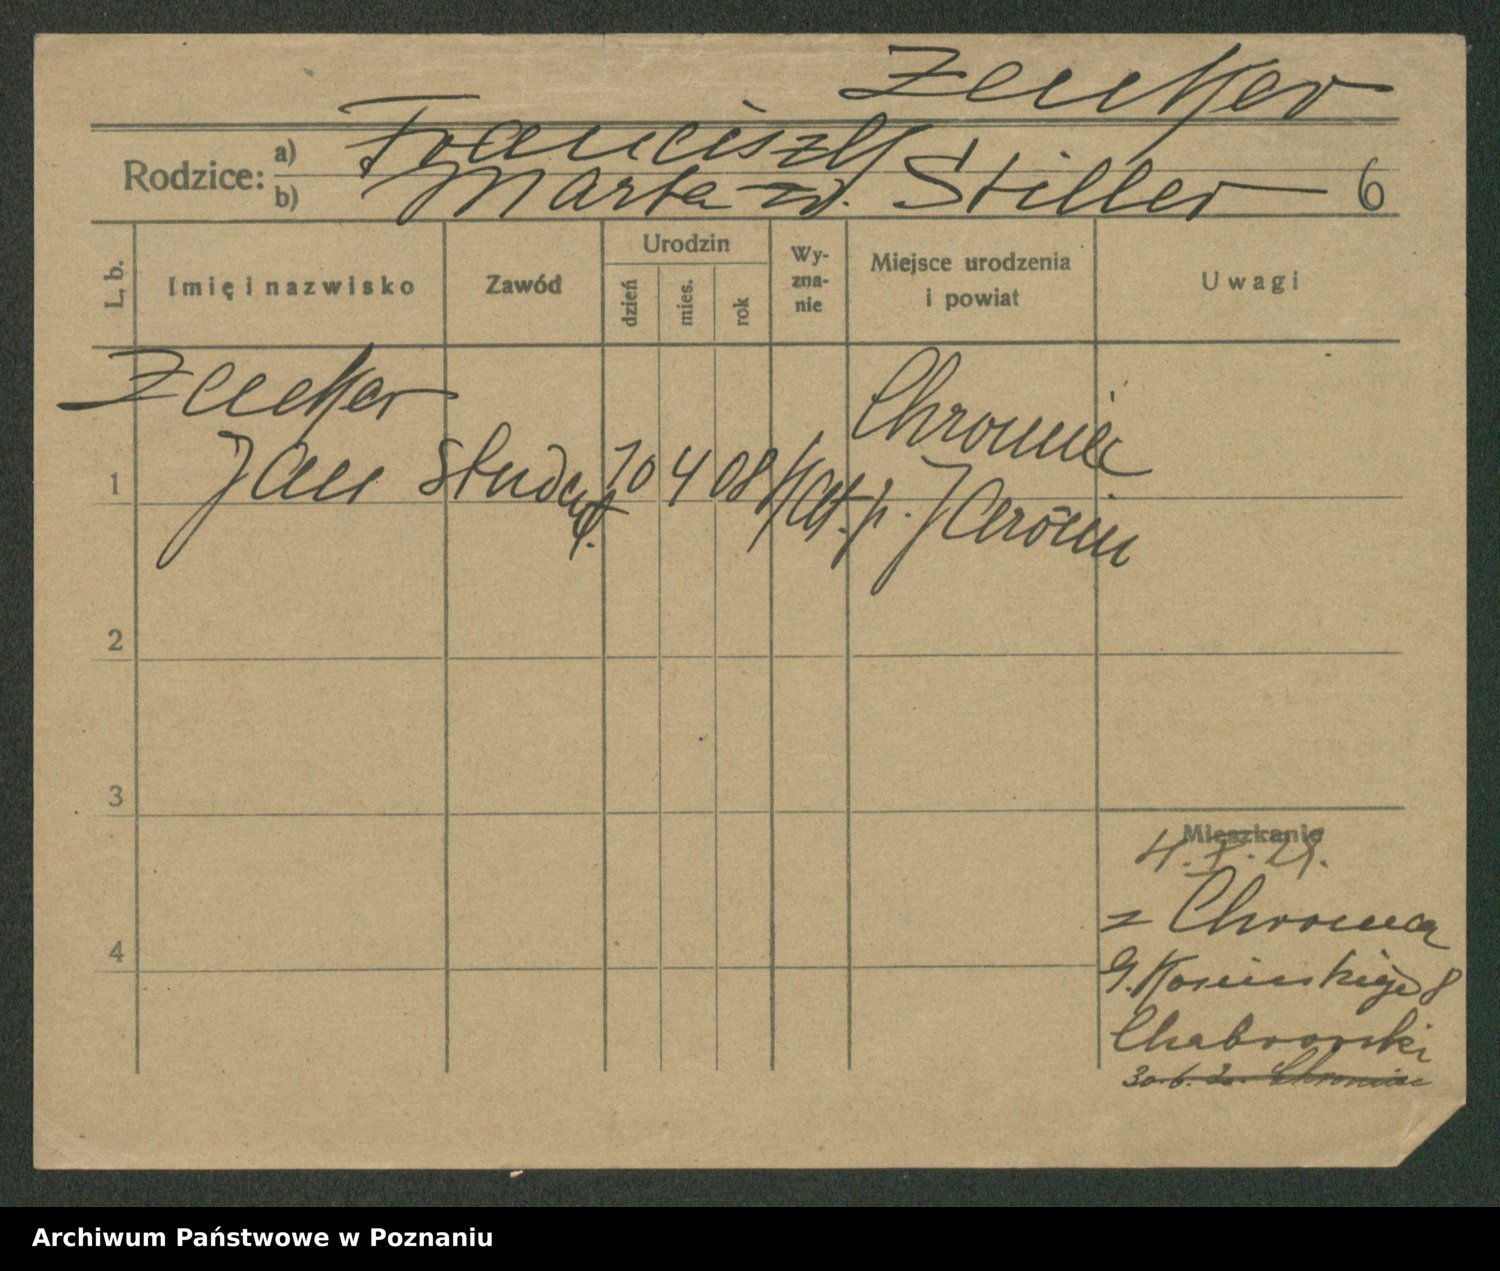 Zenker
Rodzice: a) Franciszk
b) Marta zd. Stiller 6
L. b. Imię i nazwisko Zawód Urodzin dzień mies. rok Wyznanie Miejsce urodzenia i powiat Uwagi
Zenker
1 Jan Student 10 4 08 Kat. Chromiec p. Jarocin
2
3
4
Mieszkanie
4. X. 29.
z Chromca
G. Kosińskiego 8
Chabrowski
30.6.30. Chromiec
Archiwum Państwowe w Poznaniu